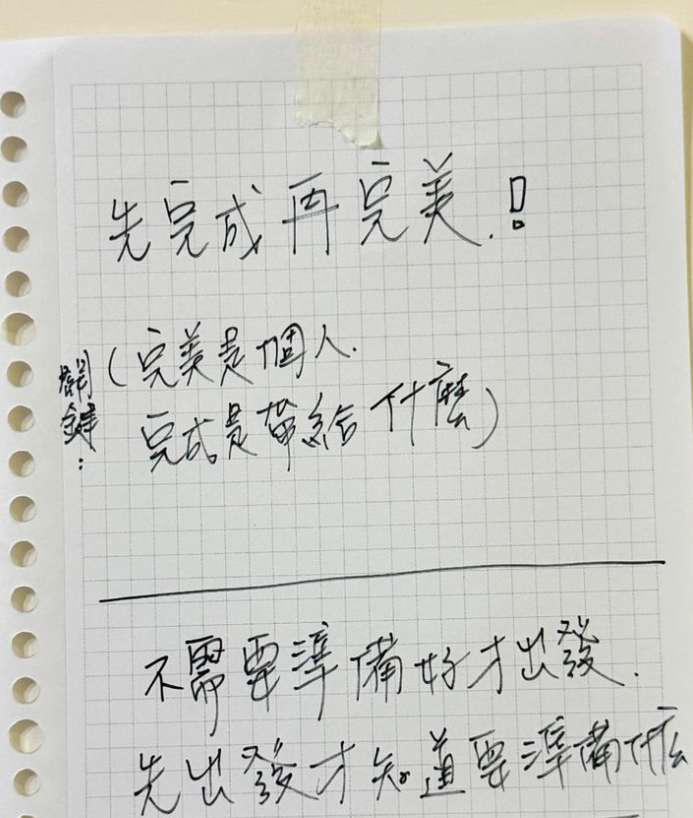 先完成再完美.!
關鍵:
(完美是個人.
完成是帶給什麼)
不需要準備好才出發.
先出發才知道要準備什么